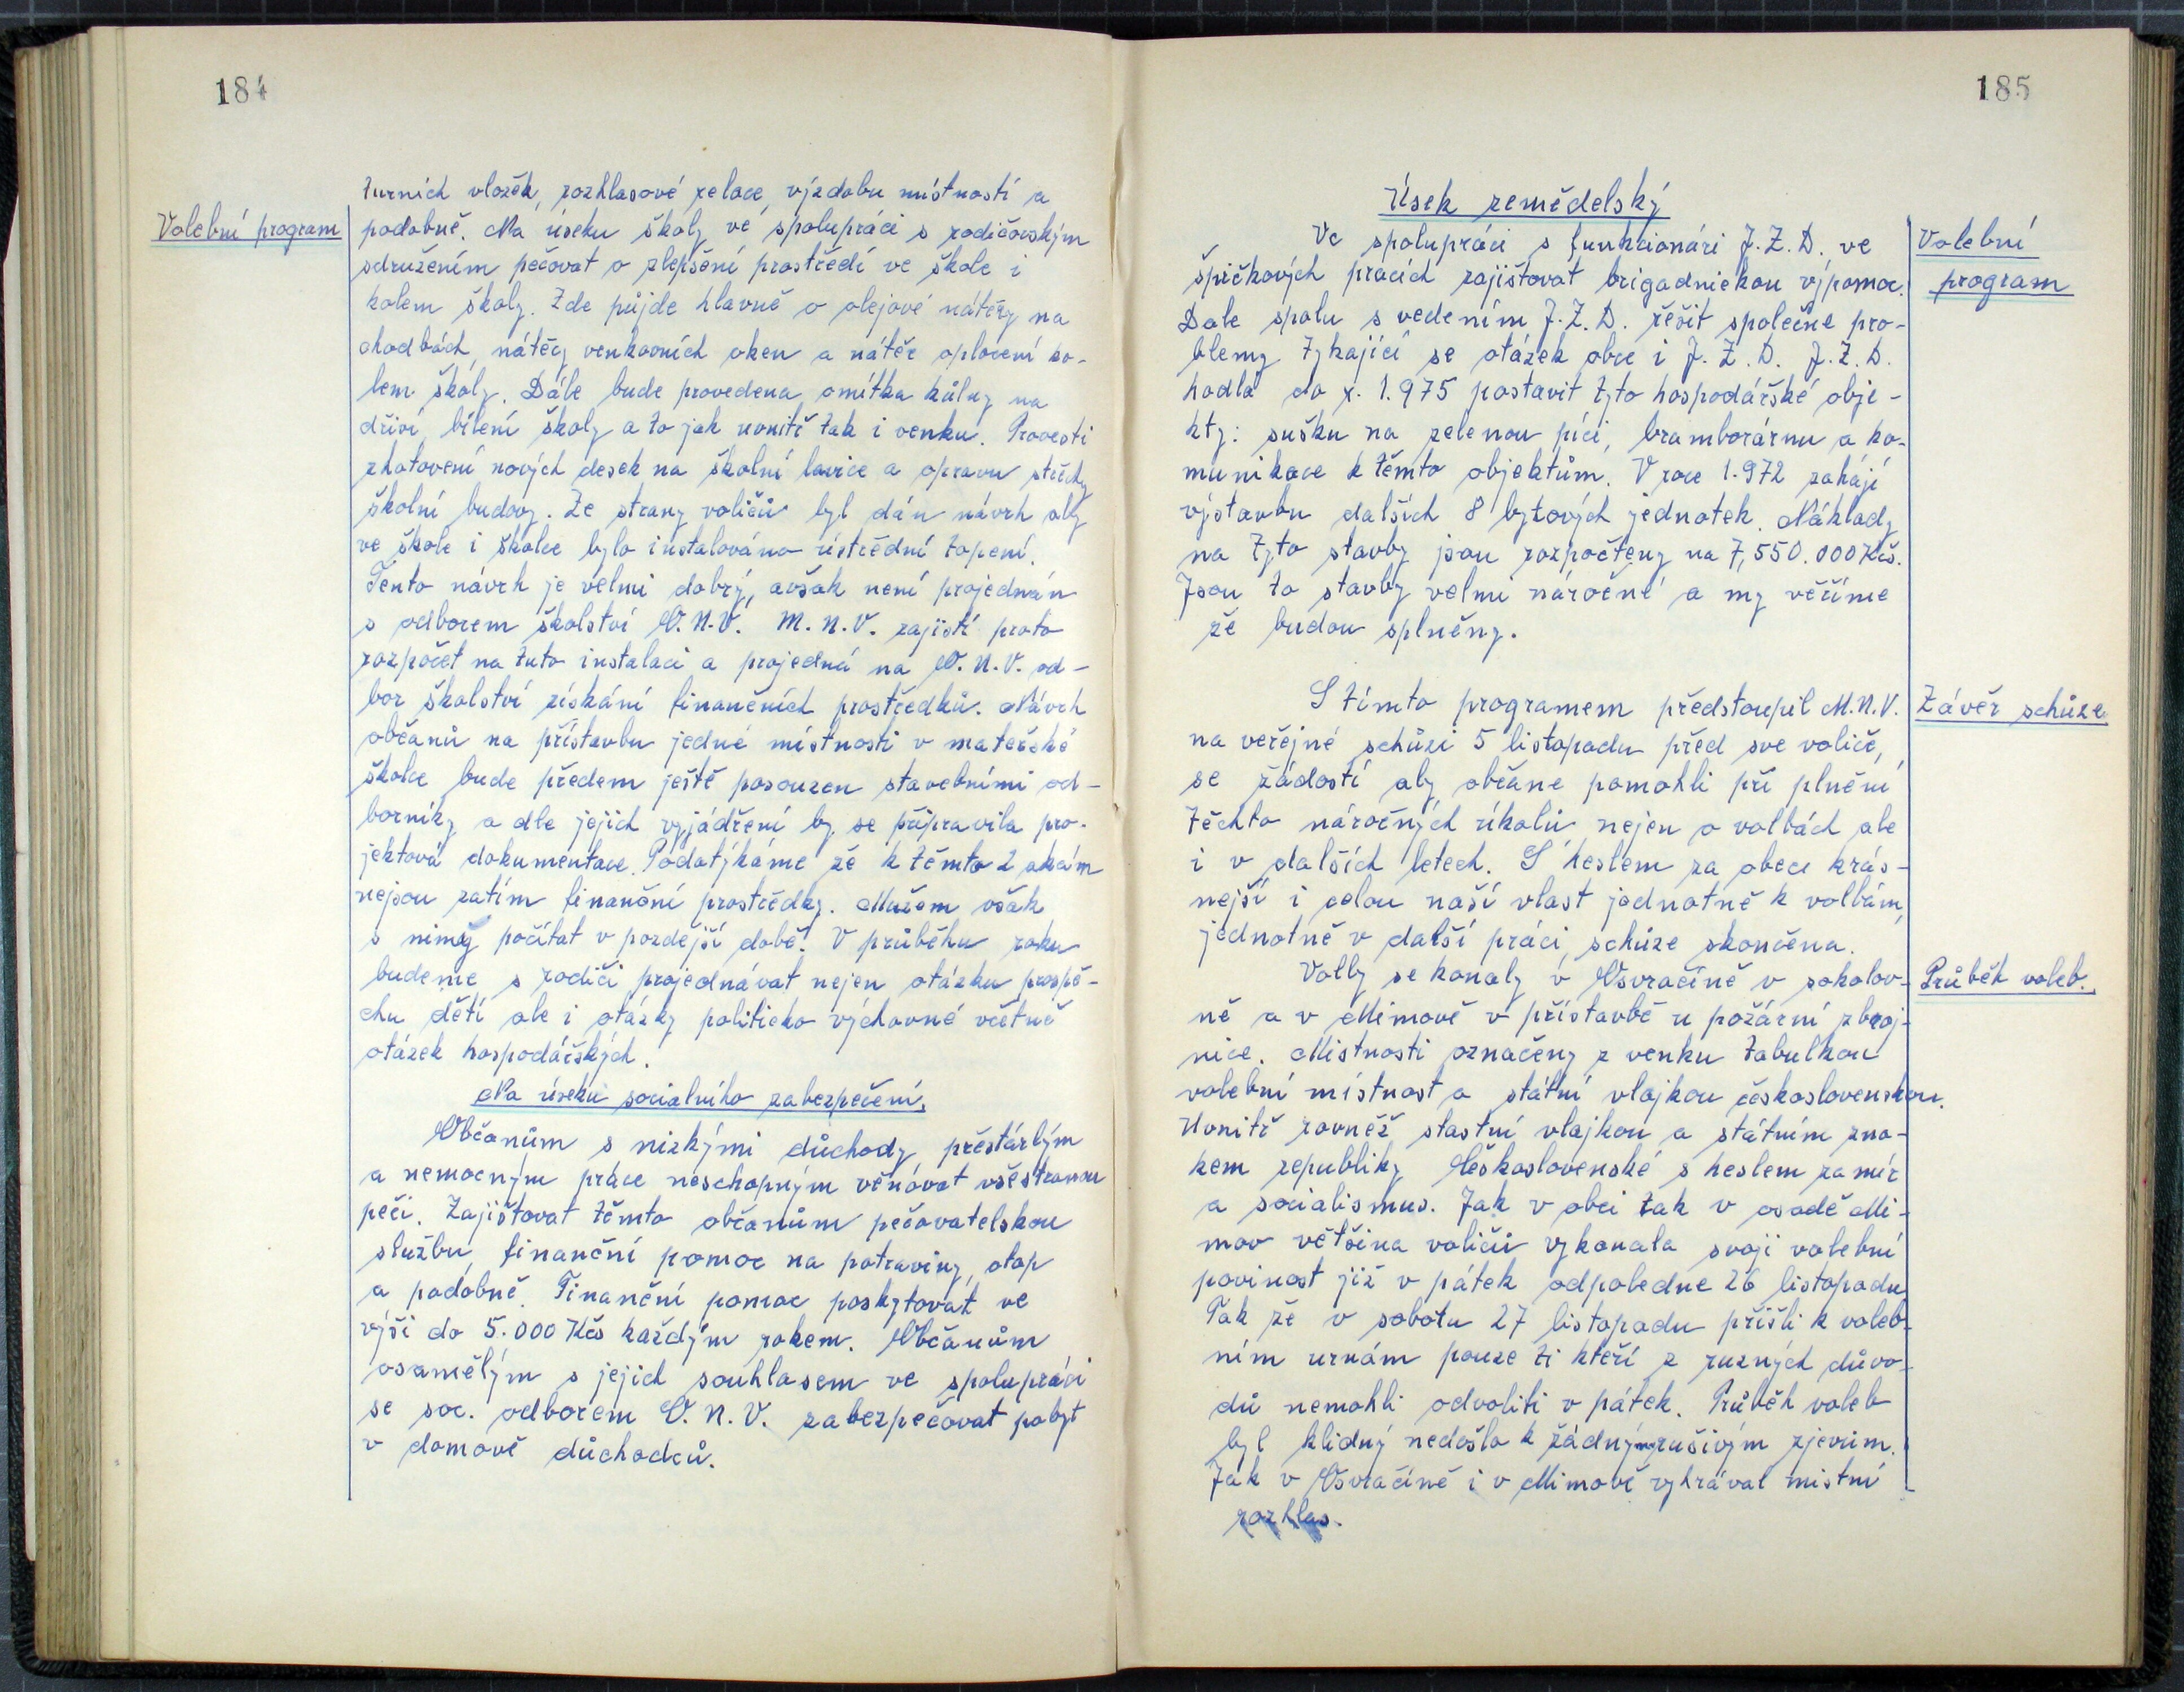 184
Volební program
turních vložek, rozhlasové relace, výzdobu místností a
podobně. Na úseku školy ve spolupráci s rodičovským
sdružením pečovat o zlepšení prostředí ve škole i
kolem školy. Zde půjde hlavně o olejové nátěry na
chodbách, nátěry venkovních oken a nátěr oplocení ko-
lem školy. Dále bude provedena omítka kůlny na
dříví, bílení školy a to jak uvnitř tak i venku. Provesti
zhotovení nových desek na školní lavice a opravu střechy
školní budovy. Ze strany voličů byl dán návrh aby
ve škole i školce bylo instalováno ústřední topení.
Tento návrh je velmi dobrý, avšak není projednán
s odborem školství O.N.V. M.N.V. zajistí proto
rozpočet na tuto instalaci a projedná na O.N.V. od-
bor školství získání finančních prostředků. Návrh
občanů na přístavbu jedné místnosti v mateřské
školce bude předem ještě posouzen stavebními od-
borníky a dle jejich vyjádření by se připravila pro-
jektová dokumentace. Podotýkáme že k těmto 2 akcím
nejsou zatím finanční prostředky. Mužem však
s nimi počítat v pozdější době. V průběhu roku
budeme s rodiči projednávat nejen otázku prospě-
chu dětí ale i otázky politicko výchovné včetně
otázek hospodářských.
Na úseku socialního zabezpečení.
Občanům s nizkými důchody přestárlým
a nemocným práce neschopným věnovat všestranou
peči. Zajištovat těmto občanům pečovatelskou
službu, finanční pomoc na potraviny, otop
a podobně. Finanční pomoc poskytovat ve
výši do 5.000 Kčs každým rokem. Občanům
osamělým s jejich souhlasem ve spolupráci
se soc. odborem O.N.V. zabezpečovat pobyt
v domově důchodců.
185
Úsek zemědelský
Volební
program
Ve spolupráci s funkcionári J.Z.D. ve
špičkových pracích zajištovat brigadnickou výpomoc.
Dale spolu s vedením J.Z.D. řěšit společné pro-
blemy týkající se otázek obce i J.Z.D. J.Z.D.
hodlá do r. 1.975 postavit tyto hospodářské obje-
kty: sušku na zelenou píci, bramborárnu a ko-
munikace k těmto objektům. V roce 1.972 zahájí
výstavbu dalších 8 bytových jednotek. Náklady
na tyto stavby jsou rozpočteny na 7,550.000 Kčs.
Jsou to stavby velmi náročné a my věříme
že budou splněny.
Závěr schůze
S tímto programem předstoupil M.N.V.
na veřejné schůzi 5 listopadu před sve voliče,
se žádostí aby občane pomohli při plnění
těchto náročných úkolů nejen o volbách ale
i v dalších letech. S heslem za obec krás-
nejší i celou naší vlast jednotně k volbám,
jednotně v další práci, schůze skončena.
Průběh voleb.
Volby se konaly v Osvračíně v sokolov-
ně a v Mimově v přístavbě u požární zbroj-
nice. Mistnosti označeny z venku tabulkou
volební místnost a státní vlajkou československou.
Uvnitř rovněž stastní vlajkou a státním zna-
kem republiky Československé s heslem za mír
a socialismus. Jak v obci tak v osadě Mi-
mov většina voličů vykonala svoji volební
povinost již v pátek odpoledne 26 listopadu
Tak že v sobotu 27 listopadu přišli k voleb-
ním urnám pouze ti kteří z ruzných důvo-
dů nemohli odvoliti v pátek. Průběh voleb
byl klidný nedošlo k žádným rušivým zjevům.
Jak v Osvračíně i v Mimově vyhrával mistní
rozhlas.